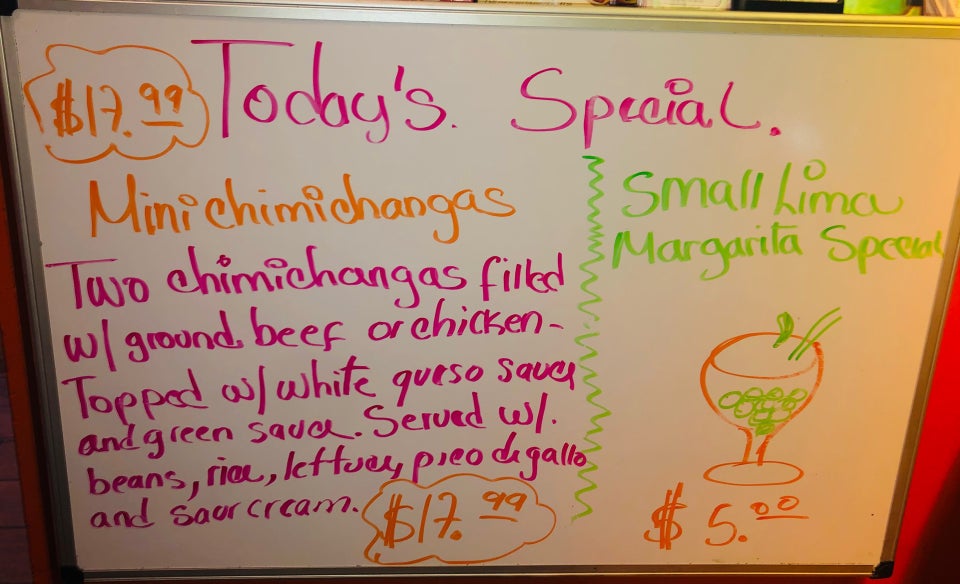 $17.99 Today's. Special.
Mini chimichangas
Two chimichangas filled
w/ ground beef or chicken-
Topped w/ white queso sauce
and green sauce. Served w/.
beans, rice, lettuce, pico de gallo
and sour cream. $17.99
Small Lima
Margarita Special
$5.00